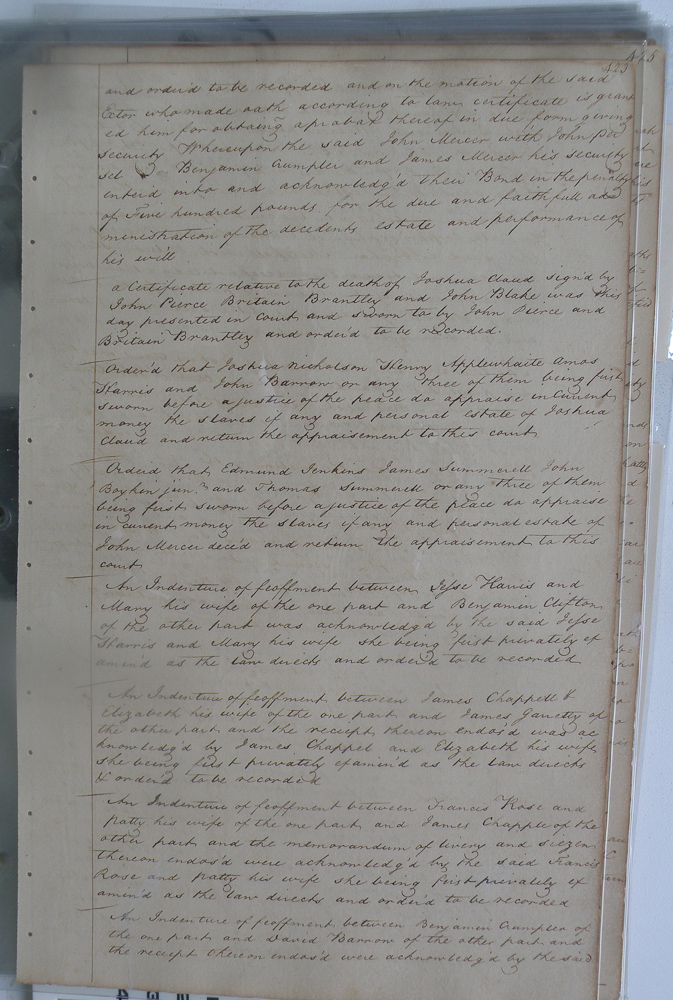 423
and order'd to be recorded and on the motion of the said
Exctor who made oath according to law certificate is grant
ed him for obtaing a probat thereof in due form giving
security Whereupon the said John Mercer with John
Benjamin Crumpler and James Mercer his security
enter'd into and acknowledg'd their Bond in the penalty
of Five hundred pounds for the due and faithfull ad
ministration of the decedents estate and performance of
his will
a Certificate relative to the death of Joshua Claud sign'd by
John Pierce Britain Brantley and John Blake was this
day presented in court and sworn to by John Pierce and
Britain Brantley and order'd to be recorded.
Order'd that Joshua Nicholson Henry Applewhaite Amos
Harris and John Barrow or any three of them being first
sworn before a justice of the peace do appraise in Current
money the slaves if any and personal estate of Joshua
Claud and return the appraisement to this court
Order'd that Edmund Jenkins James Summerell John
Boykin jun.r and Thomas Summerell or any three of them
being first sworn before a justice of the peace do appraise
in current money the slaves if any and personal estate of
John Mercer dece'd and return the appraisement to this
court
An Indenture of feoffment between Jesse Harris and
Mary his wife of the one part and Benjamin Clifton
of the other part was acknowledg'd by the said Jesse
Harris and Mary his wife she being first privately ex
amin'd as the law directs and order'd to be recorded
An Indenture of feoffment between James Chappell &
Elizabeth his wife of the one part and James of
the other part and the receipt thereon endos'd was ac
knowledg'd by James Chappel and Elizabeth his wife
she being first privately examin'd as the law directs
& order'd to be recorded
An Indenture of feoffment between Francis Rose and
patty his wife of the one part and James Chapple of the
other part and the memorandum of livery and seizen
thereon endos'd were acknowledg'd by the said Francis
Rose and patty his wife she being first privately ex
amin'd as the law directs and order'd to be recorded
An Indenture of feoffment between Benjamin Crumpler of
the one part and David Barrow of the other part and
the receipt thereon endos'd were acknowledg'd by the said